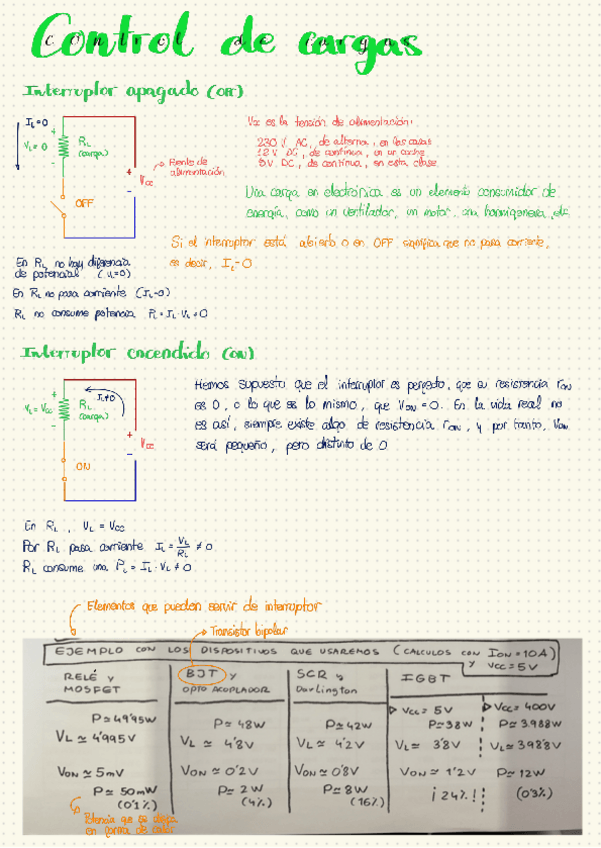 Control de cargas
Interruptor apagado (OFF)
IL=0
VL=0
+
RL
(carga)
-
OFF
+
VCC
-
→ Fuente de
alimentación
VCC es la tensión de alimentación:
230 V AC, de alterna, en las casas
12 V DC, de continua, en un coche
5V DC, de continua, en esta clase
Una carga en electrónica es un elemento consumidor de
energía, como un ventilador, un motor, una hormigonera, etc
Si el interruptor está abierto o en OFF significa que no pasa corriente,
es decir, IL=0
En RL no hay diferencia
de potencial (VL=0)
En RL no pasa corriente (IL=0)
RL no consume potencia PL=IL·VL=0
Interruptor encendido (ON)
IL≠0
VL=VCC
+
RL
(carga)
-
ON
+
VCC
-
Hemos supuesto que el interruptor es perfecto, que su resistencia rON
es 0, o lo que es lo mismo, que VON=0. En la vida real no
es así, siempre existe algo de resistencia rON, y por tanto, VON
será pequeño, pero distinto de 0
En RL, VL=VCC
Por RL pasa corriente IL=VL/RL≠0
RL consume una PL=IL·VL≠0
Elementos que pueden servir de interruptor
→ Transistor bipolar
EJEMPLO CON LOS DISPOSITIVOS QUE USAREMOS (CALCULOS CON ION=10A)
y VCC=5V
RELÉ y
MOSFET
P≃49'95W
VL≃4'995V
VON≃5mV
P≃50mW
(0'1%)
BJT y
OPTOACOPLADOR
P≃48W
VL≃4'8V
VON≃0'2V
P≃2W
(4%)
SCR y
Darlington
P≃42W
VL≃4'2V
VON≃0'8V
P≃8W
(16%)
IGBT
VCC=5V
P≃38W
VL≃3'8V
VON≃1'2V
¡24%!
VCC=400V
P≃3.988W
VL≃398'8V
P≃12W
(0'3%)
Potencia que se disipa
en forma de calor